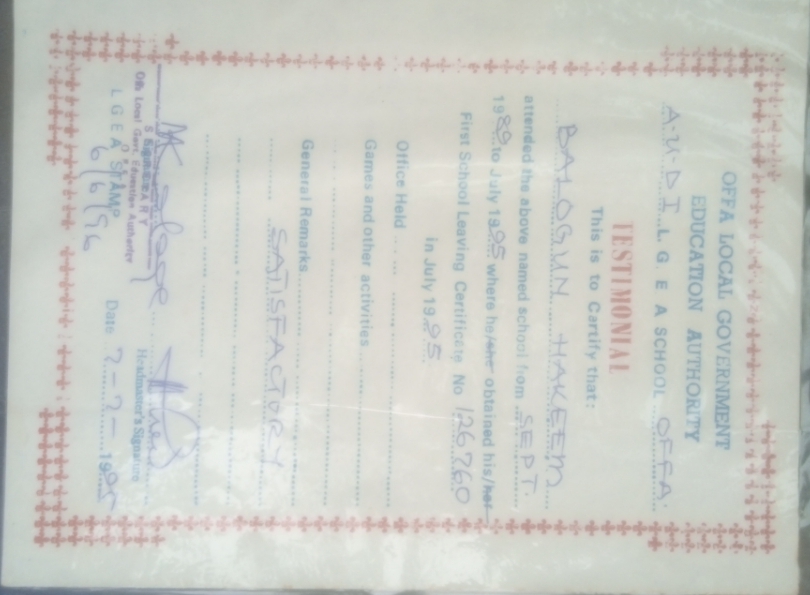 OFFA LOCAL GOVERNMENT
EDUCATION AUTHORITY
A.U.D I L. G. E A SCHOOL OFFA.
TESTIMONIAL
This is to Cartify that:
BALOGUN HAKEEM
attended the above named school from SEPT.
1989 to July 1995 where he/she obtained his/her
First School Leaving Certificate No 126760
in July 1995
Office Held
Games and other activities
General Remarks
SATISFACTORY
Headmaster's Signature
SECRETARY
Offa Local Govt. Education Authority
L G E A STAMP
6/6/96
Date 7-7-1995